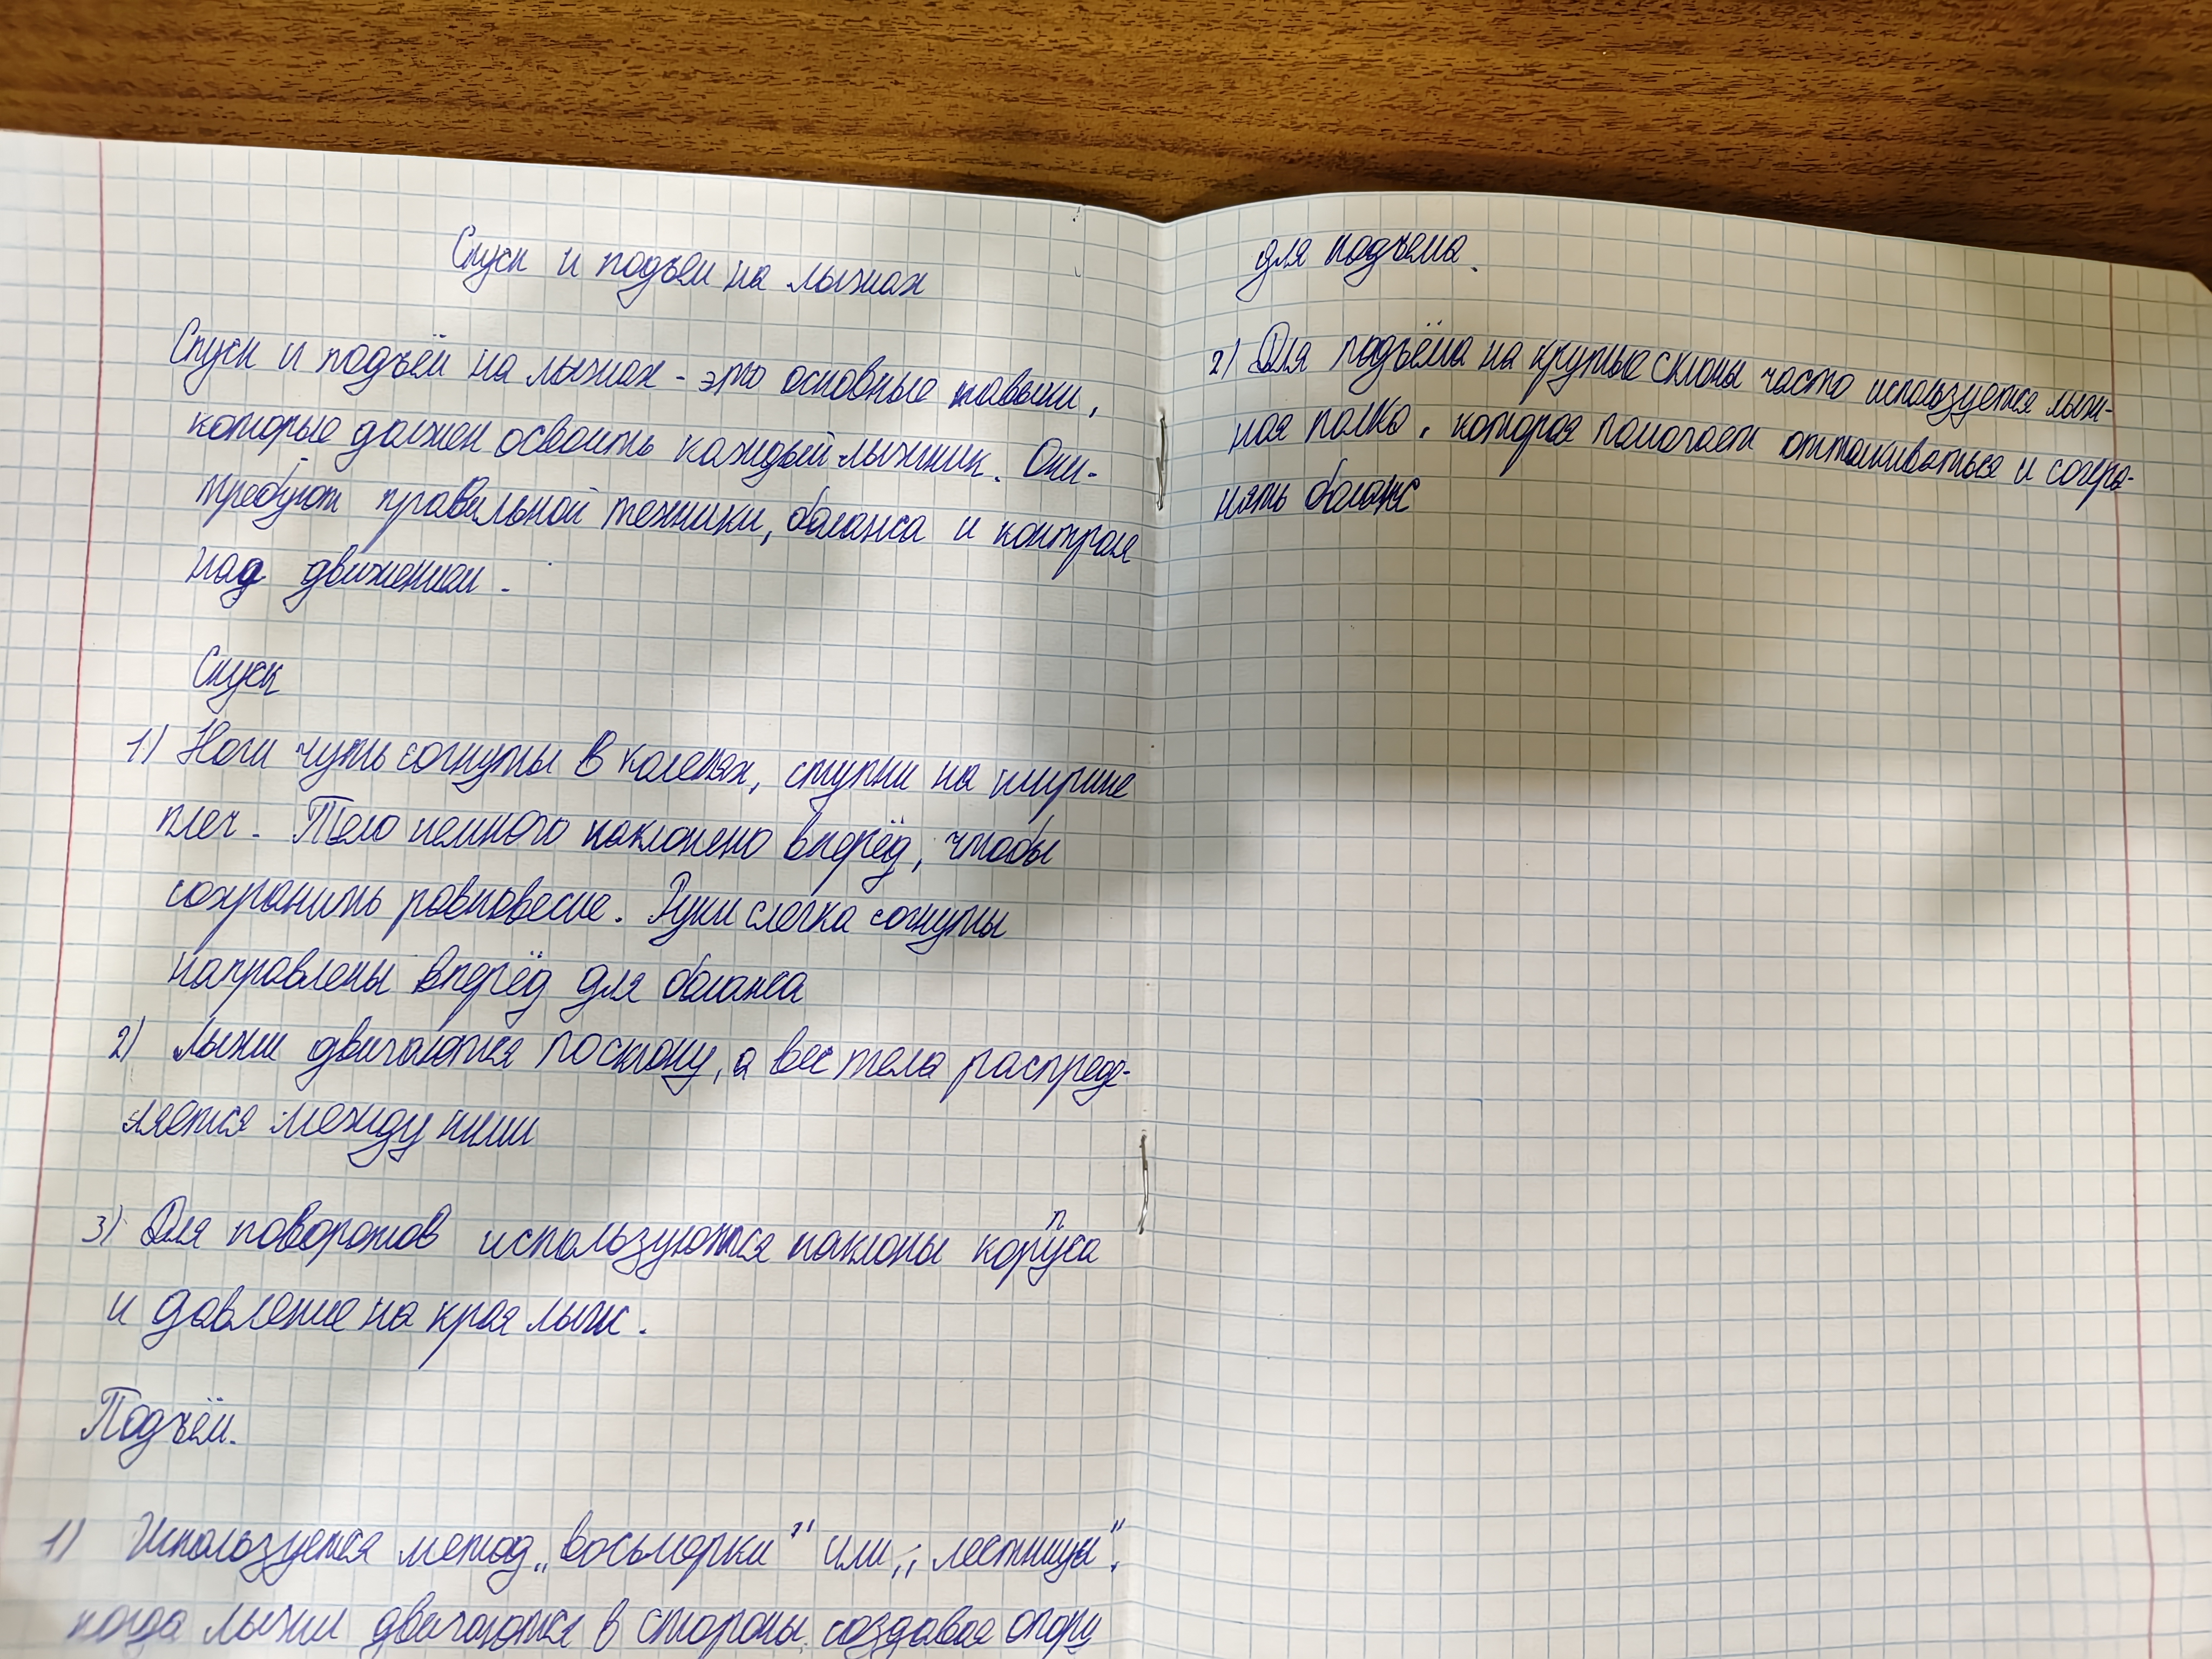 Спуск и подъем на лыжах
Спуск и подъём на лыжах - это основные навыки,
которые должен освоить каждый лыжник. Они-
требуют правильной техники, баланса и контроля
над движением.
Спуск
1) Ноги чуть согнуты в коленях, ступни на ширине
плеч. Тело немного наклонено вперёд, чтобы
сохранить равновесие. Руки слегка согнуты
направлены вперёд для баланса
2) Лыжи двигаются по склону, а вес тела распреде-
ляется между ними
3) Для поворотов используются наклоны корпуса
и давление на края лыж.
Подъём.
1) Используется метод „восьмерки" или „лестницы",
когда лыжи двигаются в стороны, создавая опору
для подъема.
2) Для подъёма на крутые склоны часто используется лыж-
ная палка, которая помогает отталкиваться и сохра-
нять баланс